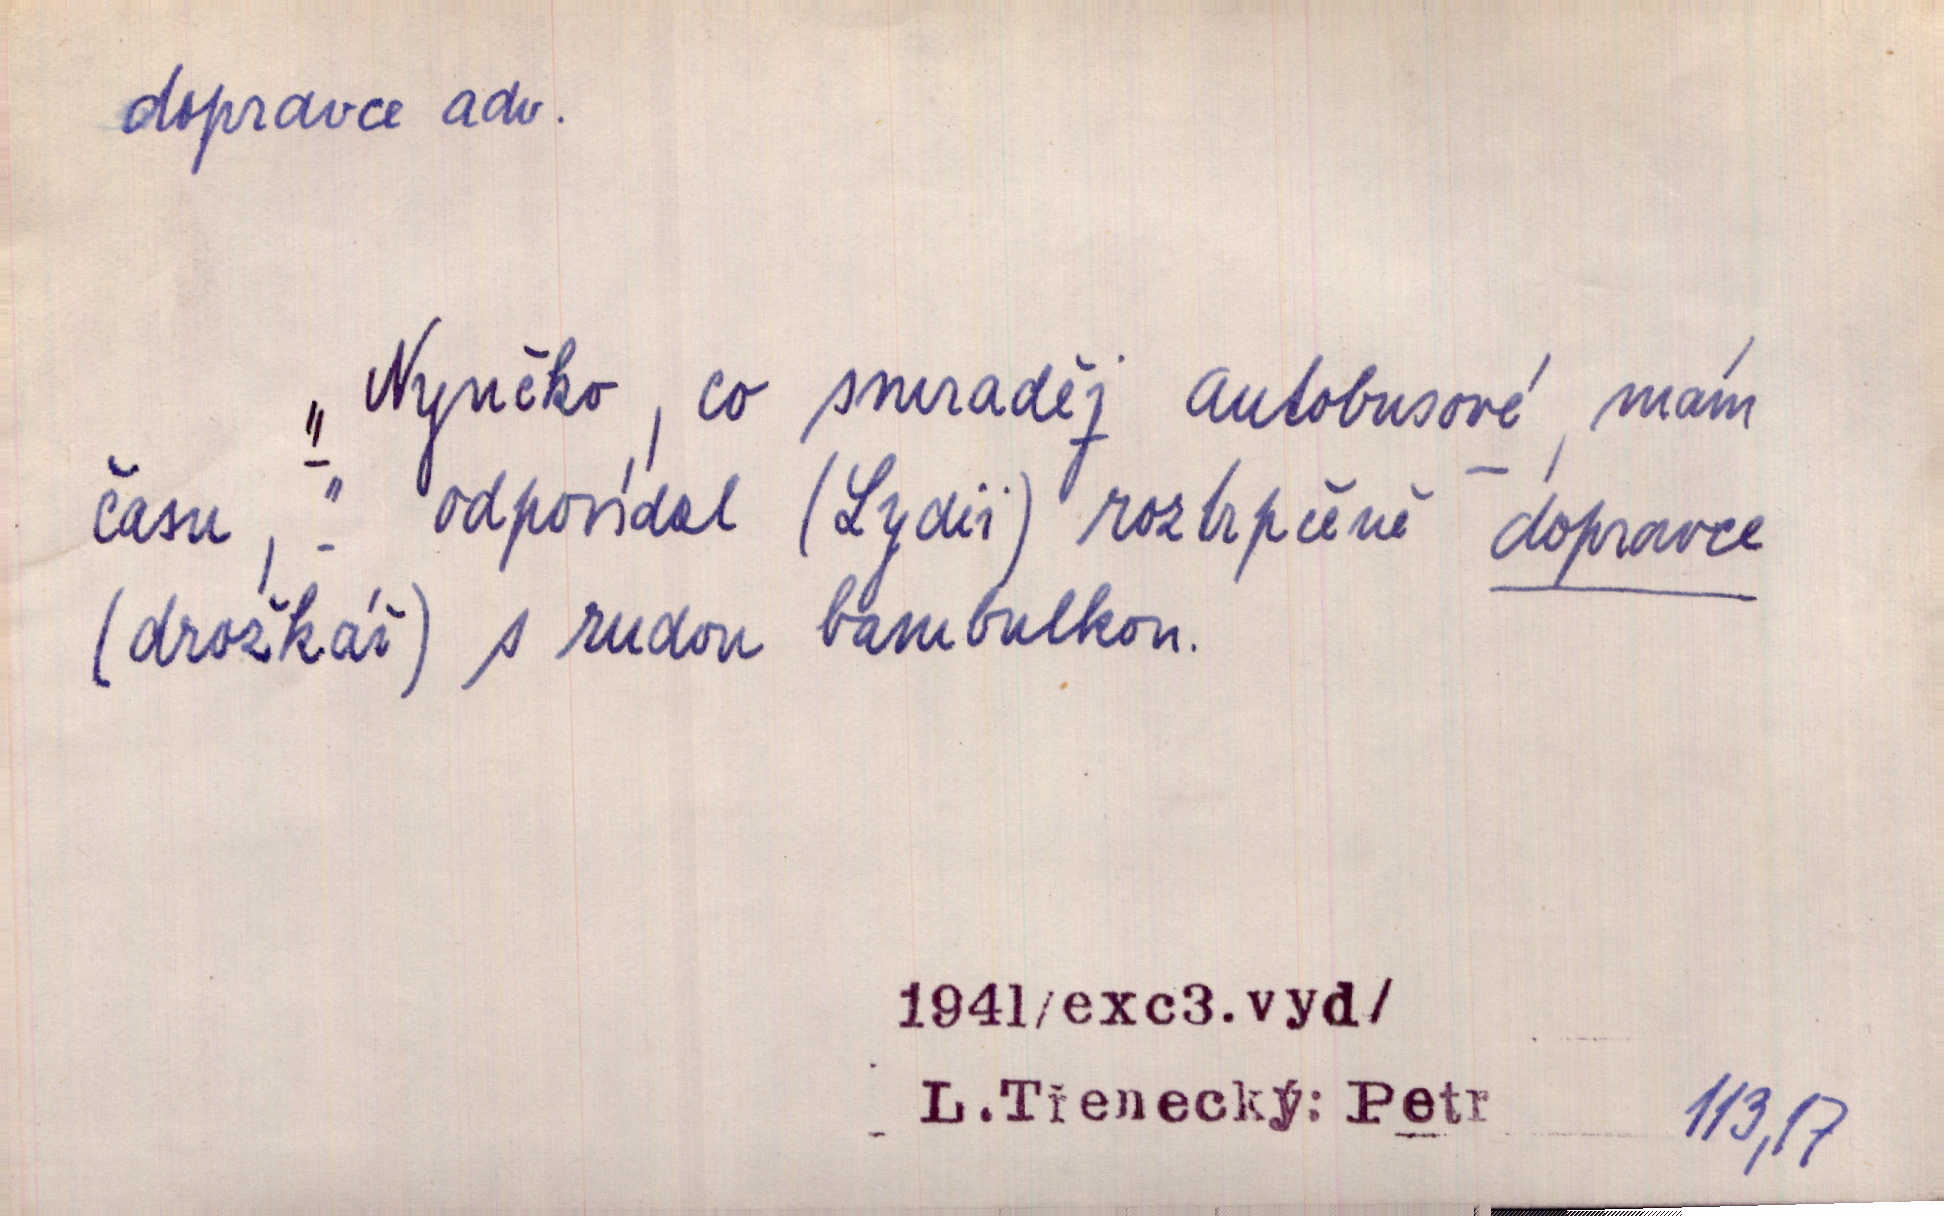 dopravce adv.
„Nynčko, co smraděj autobusové, mám
času,“ odpovídal (Lydii) roztrpčeně dopravce
(drožkář) s rudou bambulkou.
1941/exc3.vyd/
L.Třenecký: Petr
113,17